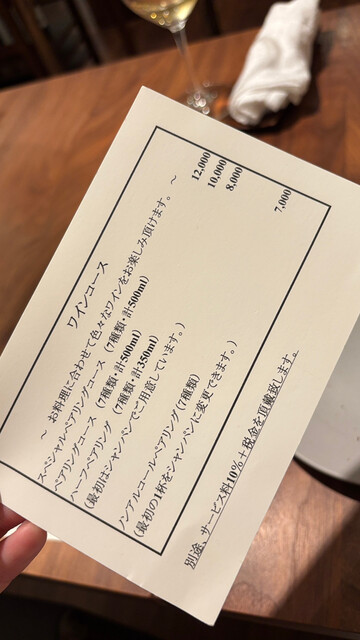 ワインコース
～ お料理に合わせて色々なワインをお楽しみ頂けます。 ～
スペシャルペアリングコース (7種類・計500ml) 12,000
ペアリングコース (7種類・計500ml) 10,000
ハーフペアリング (7種類・計350ml) 8,000
(最初はシャンパンでご用意しています。)
ノンアルコールペアリング(7種類) 7,000
(最初の1杯をシャンパンに変更できます。)
別途、サービス料10%＋税金を頂戴致します。